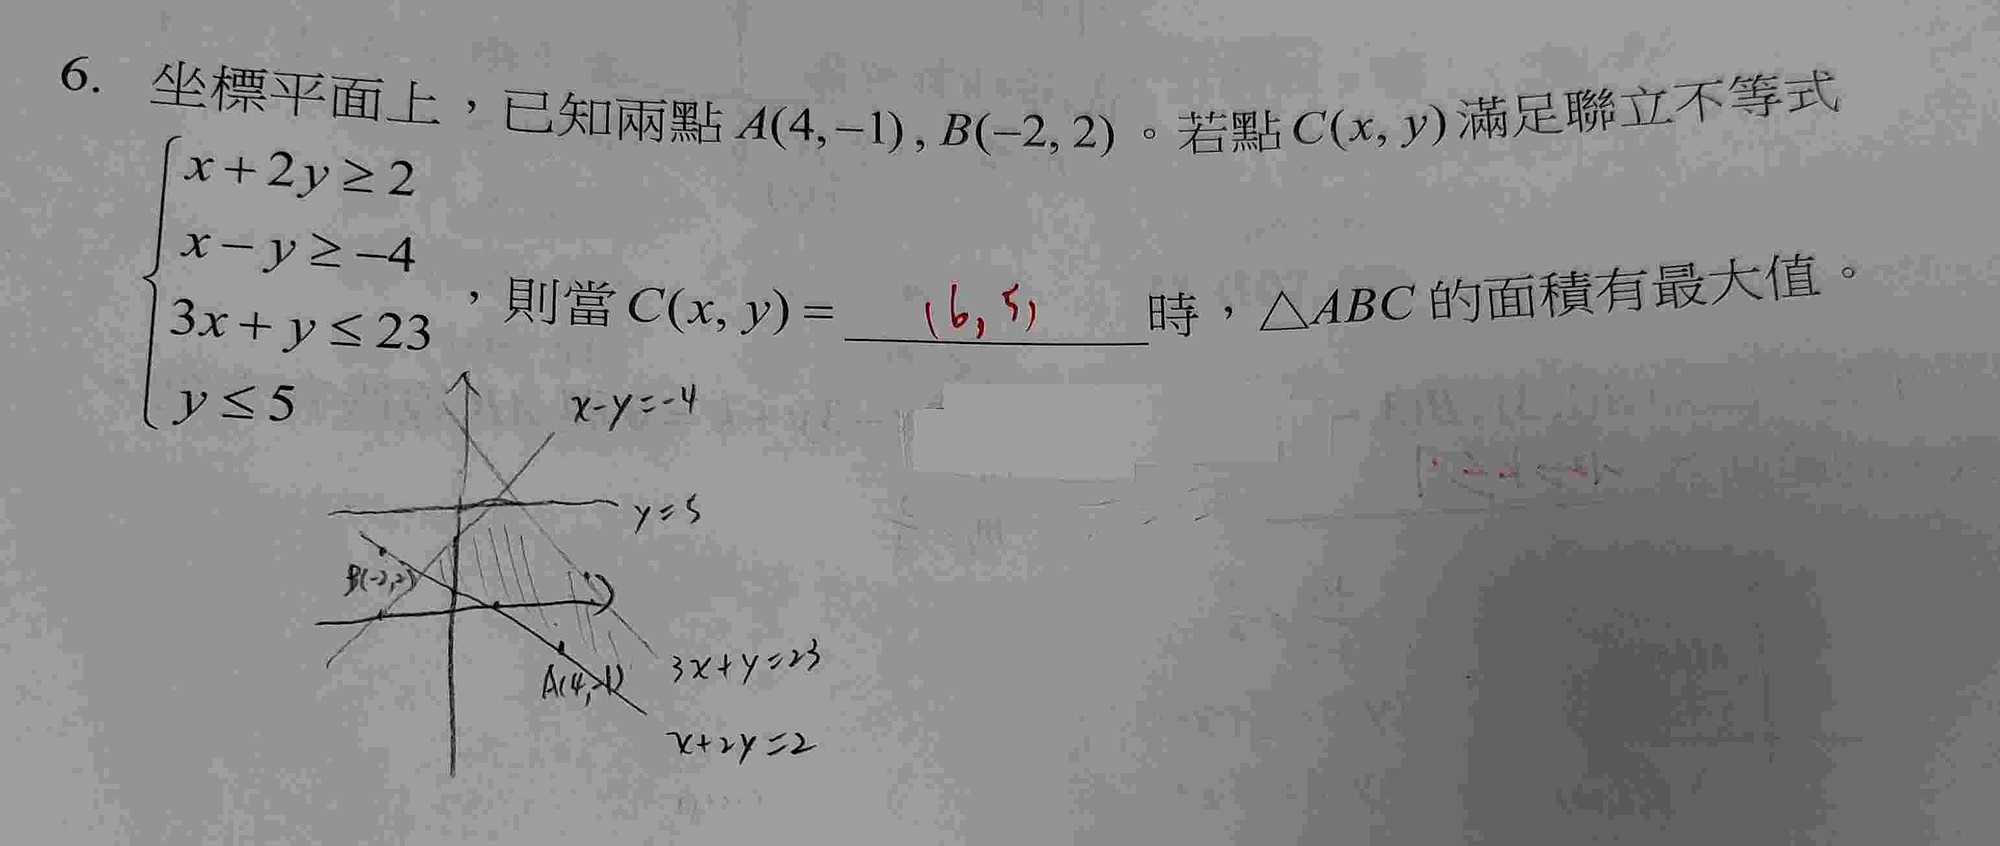 6. 坐標平面上，已知兩點 A(4,−1), B(−2, 2)。若點 C(x, y) 滿足聯立不等式
x+2y≥2
x−y≥−4
3x+y≤23
y≤5
，則當 C(x, y)= (6, 5) 時，△ABC 的面積有最大值。
x-y=-4
y=5
B(-2,2)
A(4,-1)
3x+y=23
x+2y=2